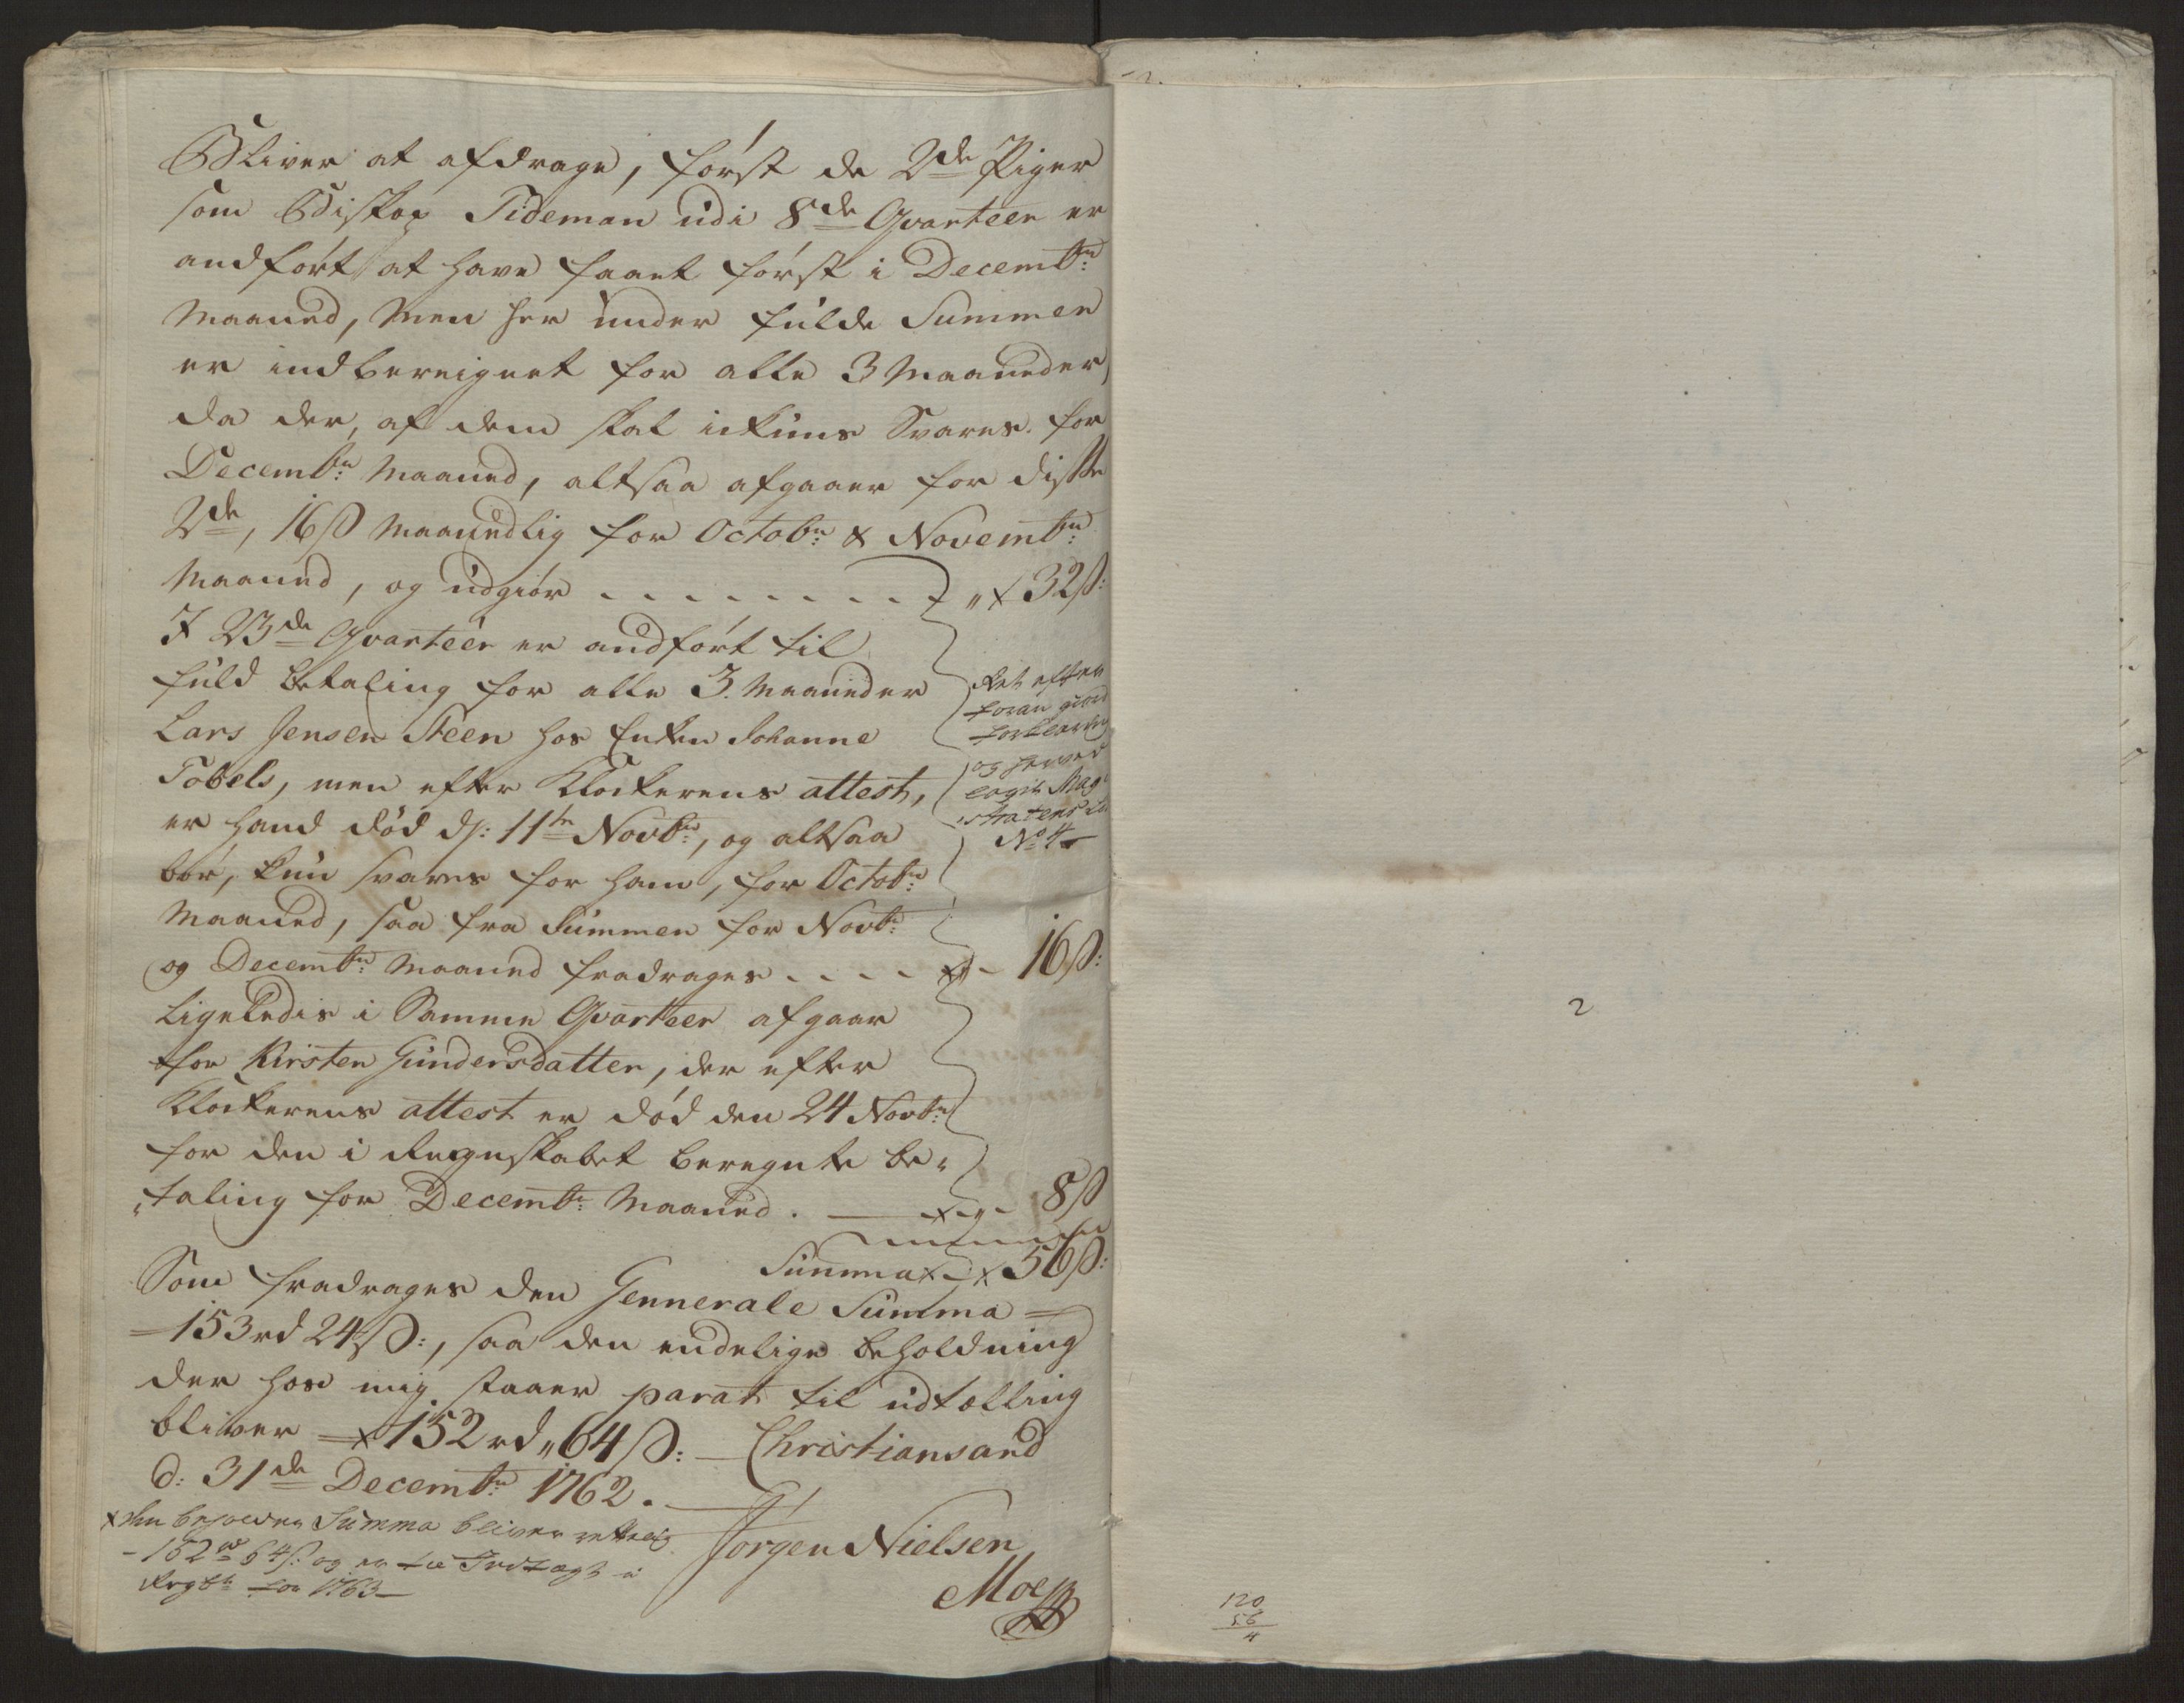 Bliver at afdrage, først de 2de Piger
som Biskop Tideman udi 8de Qvarteer er
andført at have faaet først i Decembr:
Maaned, Men her under fulde Summen
er indbereignet for alle 3 Maaneder,
da der, af dem skal ickuns Svares for
Decembr: Maaned, altsaa afgaaer for disse
2de, 16 ß Maanedlig for Octobr: & Novembr:
Maaned, og udgiør - - - - - - - - " x 32 ß:
I 23de Qvarteer er andført til
fuld betaling for alle 3. Maaneder
Lars Jensen Steen hos Enken Johanne
Tobels, men efter Klockerens attest,
er hand død d: 11te Novbr:, og altsaa
bør, kun svares for ham, for Octobr:
Maaned, saa fra Summen for Novbr:
og Decembr: Maaned fradrages - - - - x - 16 ß:
Ligeledis i Samme Qvarteer afgaar
for Kirsten Gundersdatter, der efter
Klockerens attest er død den 24 Novbr:
for den i Regnskabet beregnte be-
taling for Decembr: Maaned. — x - " - 8 ß
Summa x - x 56 ß:
Ret efter
foran giord
forklaring
og herved
lagte Mag-
istratens
No 4
Som fradrages den Gennerale Summa =
= 153 rd 24 ß:, saa den endelige beholdning
der hos mig staaer parat til udtælling
bliver = x 152 rd " 64 ß: — Christiansand
d: 31de Decembr: 1762. —
Jørgen Nielsen
Moe
x den beholdne Summa bliver rettelig
- 152 rd 64 ß: og er til Indtægt i
Regsk: for 1763 —
2
120
56
4